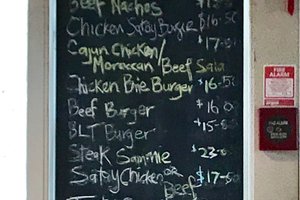 Beef Nachos
Chicken Satay Burger $16-50
Cajun Chicken/ $17-50
Moroccan / Beef Sala
Chicken Brie Burger $16-50
Beef Burger $16
BLT Burger $15-50
Steak Sammie $23-0
Satay Chicken or $17-50
Beef
FIRE
ALARM